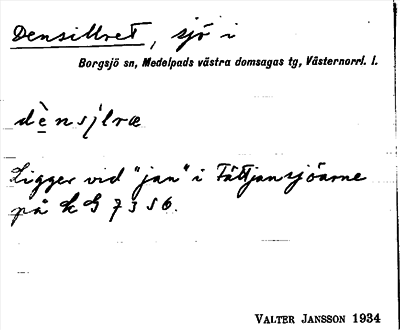 Densillret, sjö i
Borgsjö sn, Medelpads västra domsagas tg, Västernorrl. l.
dènsįlræ
Ligger vid "jan" i Tättjansjöarne
på kG 7356.
VALTER JANSSON 1934